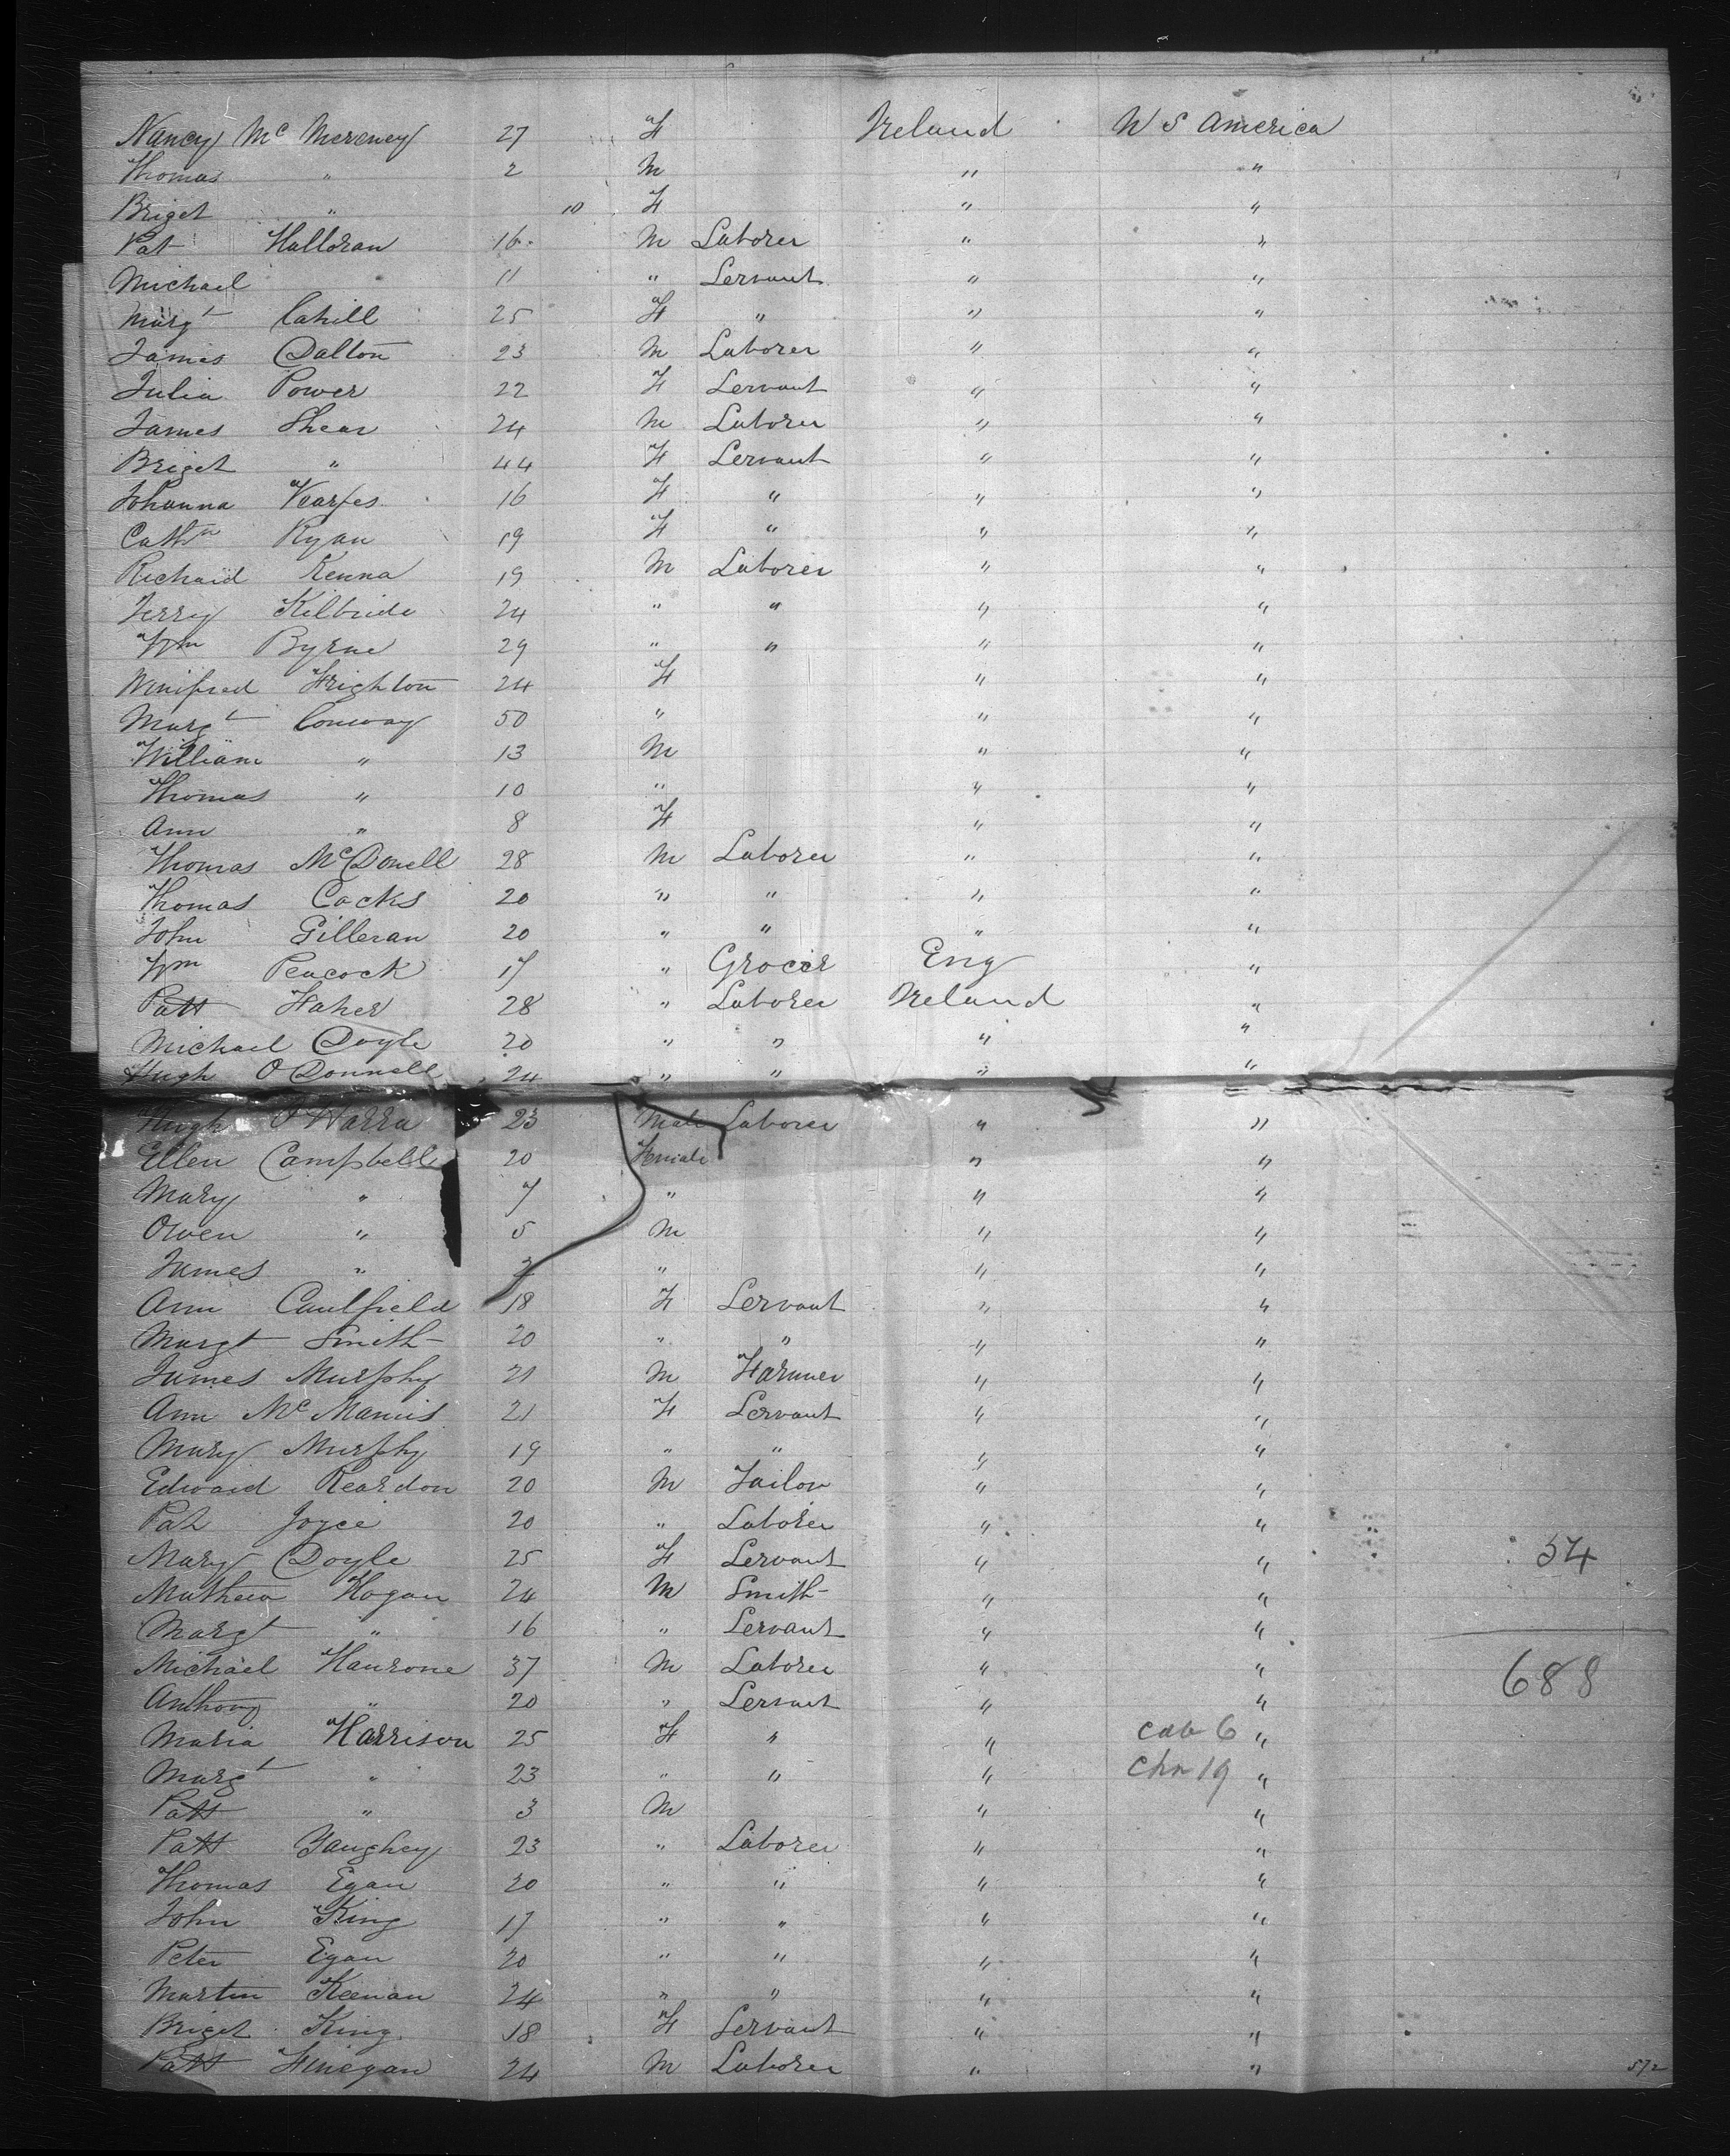 Nancy Mc Mereney 27 F Ireland U S America
Thomas " 2 M " "
Briget " 10 F " "
Pat Halloran 16 M Laborer " "
Michael 11 " Servant " "
Margt Cahill 25 F " " "
James Dalton 23 M Laborer " "
Julia Power 22 F Servant " "
James Shear 24 M Laborer " "
Briget " 44 F Servant " "
Johanna 16 F " " "
Cathn Ryan 19 F " " "
Richard Kenna 19 M Laborer " "
Jerry Kilbride 24 " " " "
Wm Byrne 29 " " " "
Winifred Frighton 24 F " "
Margt Conway 50 " " "
William " 13 M " "
Thomas " 10 " " "
Ann " 8 F " "
Thomas McDonell 28 M Laborer " "
Thomas Cocks 20 " " " "
John Gilleran 20 " " " "
Wm Peacock 17 " Grocer Eng "
Patt Faher 28 " Laborer Ireland "
Michael Doyle 20 " " " "
Hugh O'Donnell 24 " " " "
Hugh O'Harra 23 Male Laborer " "
Ellen Campbell 20 Female " "
Mary " 7 " " "
Owen " 5 M " "
James " " " "
Ann Caulfield 18 F Servant " "
Margt Smith 20 " " " "
James Murphy 21 M Farmer " "
Ann Mc Manus 21 F Servant " "
Mary Murphy 19 " " " "
Edward Reardon 20 M Tailor " "
Pat Joyce 20 " Laborer " "
Mary Doyle 25 F Servant " " 54
Mathew Hogan 24 M Smith " "
Margt " 16 " Servant " "
Michael Hanrone 37 M Laborer " " 688
Anthony " 20 " Servant " "
Maria Harrison 25 F " " cab 6 "
Margt " 23 " " " chn 19 "
Patt " 3 M " "
Patt Gaughey 23 " Laborer " "
Thomas Egan 20 " " " "
John King 17 " " " "
Peter Egan 20 " " " "
Martin Keenan 24 " " " "
Briget King 18 F Servant " "
Patt Finegan 24 M Laborer " "
572